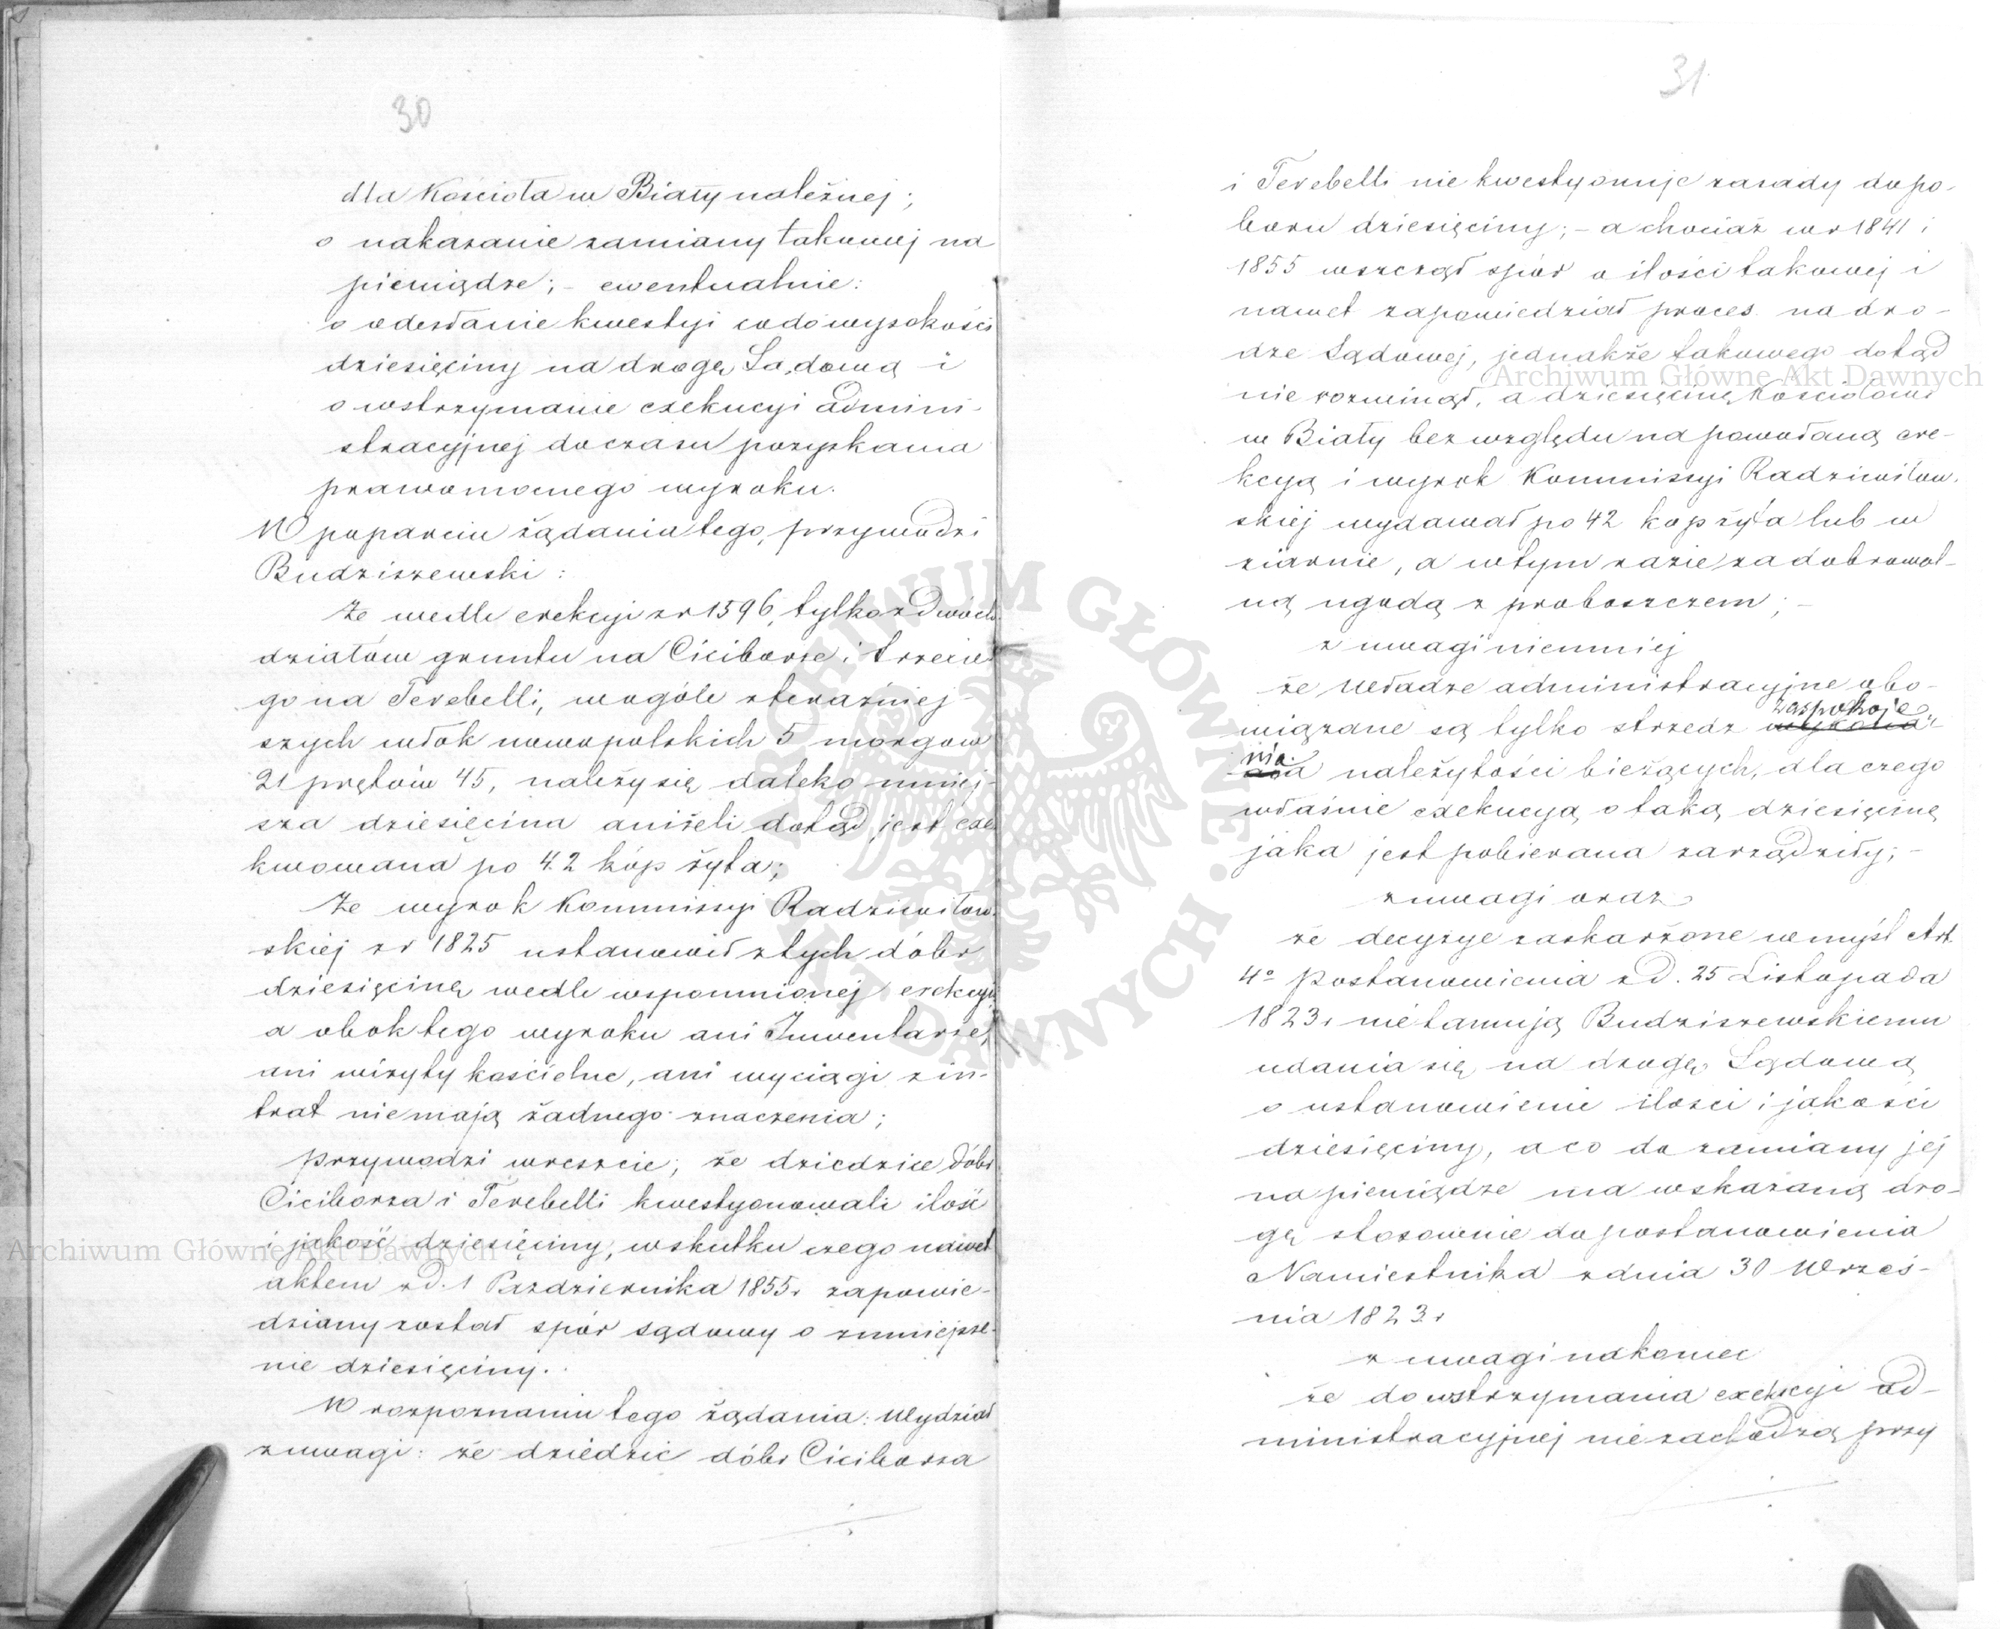 30
dla Kościoła w Biały należnej;
o nakazanie zamiany takowej na
pieniądze; – ewentualnie:
o odesłanie kwestyi co do wysokości
dziesięciny na drogę Sądową i
o wstrzymanie exekucyi admini-
stracyjnej do czasu pozyskania
prawomocnego wyroku.
W poparciu żądania tego, przywodzi
Budziszewski:
Że wedle erekcyi z r 1596, tylko z dwóch
działów gruntu na Ciciborze i trzecie
go na Terebelli, wogóle z teraźniej-
szych włók nowopolskich 5 morgów
21 prętów 45, należy się daleko mniej-
sza dziesięcina aniżeli dotąd jest exe
kwowana po 42 kóp żyta;
Że wyrok Kommissyi Radziwiłłow-
skiej z r 1825 ustanowił z tych dóbr
dziesięcinę wedle wspomnionej erekcyi
a obok tego wyroku ani Inwentarze,
ani wizyty kościelne, ani wyciągi z in-
trat nie mają żadnego znaczenia;
przywodzi wreszcie, że dziedzice dóbr
Ciciborza i Terebelli kwestyonowali ilość
i jakość dziesięciny, wskutku czego nawet
aktem z d. 1 Pazdziernika 1855 r zapowie-
dziany został spór sądowy o zmniejsze-
nie dziesięciny.
W rozpoznaniu tego żądania: Wydział
z uwagi: że dziedzic dóbr Ciciborza
31
i Terebelli nie kwestyonuje zasady do po-
boru dziesięciny; – a chociaż w r 1841 i
1855 wszczął spór o ilości takowej i
nawet zapowiedział proces na dro-
dze Sądowej, jednakże takowego dotąd
nie rozwinął, a dziesięcinę Kościołowi
w Biały bez względu na powołaną ere-
kcyą i wyrok Kommissyi Radziwiłow-
skiej wydawał po 42 kop żyta lub w
ziarnie, a w tym razie za dobrowol-
ną ugodą z proboszczem; –
z uwagi niemniej
że Władze administracyjne obo-
wiązane są tylko strzedz zaspokoje
nia należytości bieżących, dla czego
właśnie exekucyą o taką dziesięcinę
jaka jest pobierana zarządziły; –
z uwagi oraz
że decyzye zaskarżone w myśl Art.
4º Postanowienia z d. 25 Listopada
1823 r nie tamują Budziszewskiemu
udania się na drogę Sądową
o ustanowienie ilości i jakości
dziesięciny, a co do zamiany jej
na pieniądze ma wskazaną dro-
gę stosownie do postanowienia
Namiestnika z dnia 30 Wrześ-
nia 1823 r
z uwagi nakoniec
że do wstrzymania exekucyi ad-
ministracyjnej nie zachodzą przy
Archiwum Główne Akt Dawnych
Archiwum Główne Akt Dawnych
ARCHIWUM GŁÓWNE AKT DAWNYCH